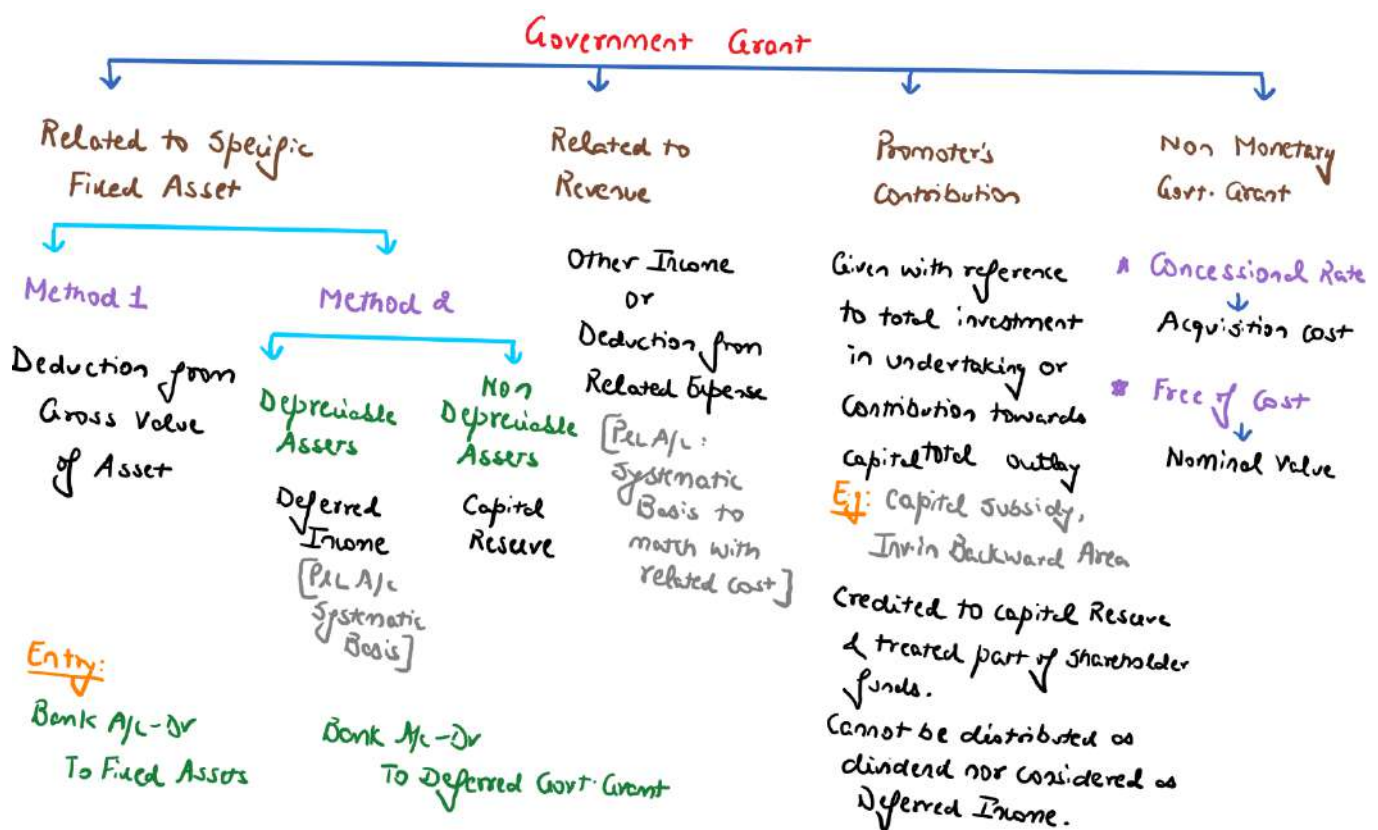 Government Grant
Related to Specific
Fixed Asset
Method 1
Deduction from
Gross Value
of Asset
Method 2
Depreciable
Assers
Deferred
Income
[P&L A/c
Systematic
Basis]
Non
Depreciable
Assers
Capital
Reserve
Entry:
Bank A/c-Dr
To Fixed Assets
Bank A/c-Dr
To Deferred Govt. Grant
Related to
Revenue
Other Income
or
Deduction from
Related Expense
[P&L A/c:
Systematic
Basis to
match with
related cost]
Promoter's
Contribution
Given with reference
to total investment
in undertaking or
Contribution towards
capital total outlay
Eg: Capital Subsidy,
Inv. in Backward Area
Credited to Capital Reserve
& treated part of shareholder
funds.
Cannot be distributed as
dividend nor considered as
Deferred Income.
Non Monetary
Govt. Grant
* Concessional Rate
Acquisition Cost
* Free of Cost
Nominal Value